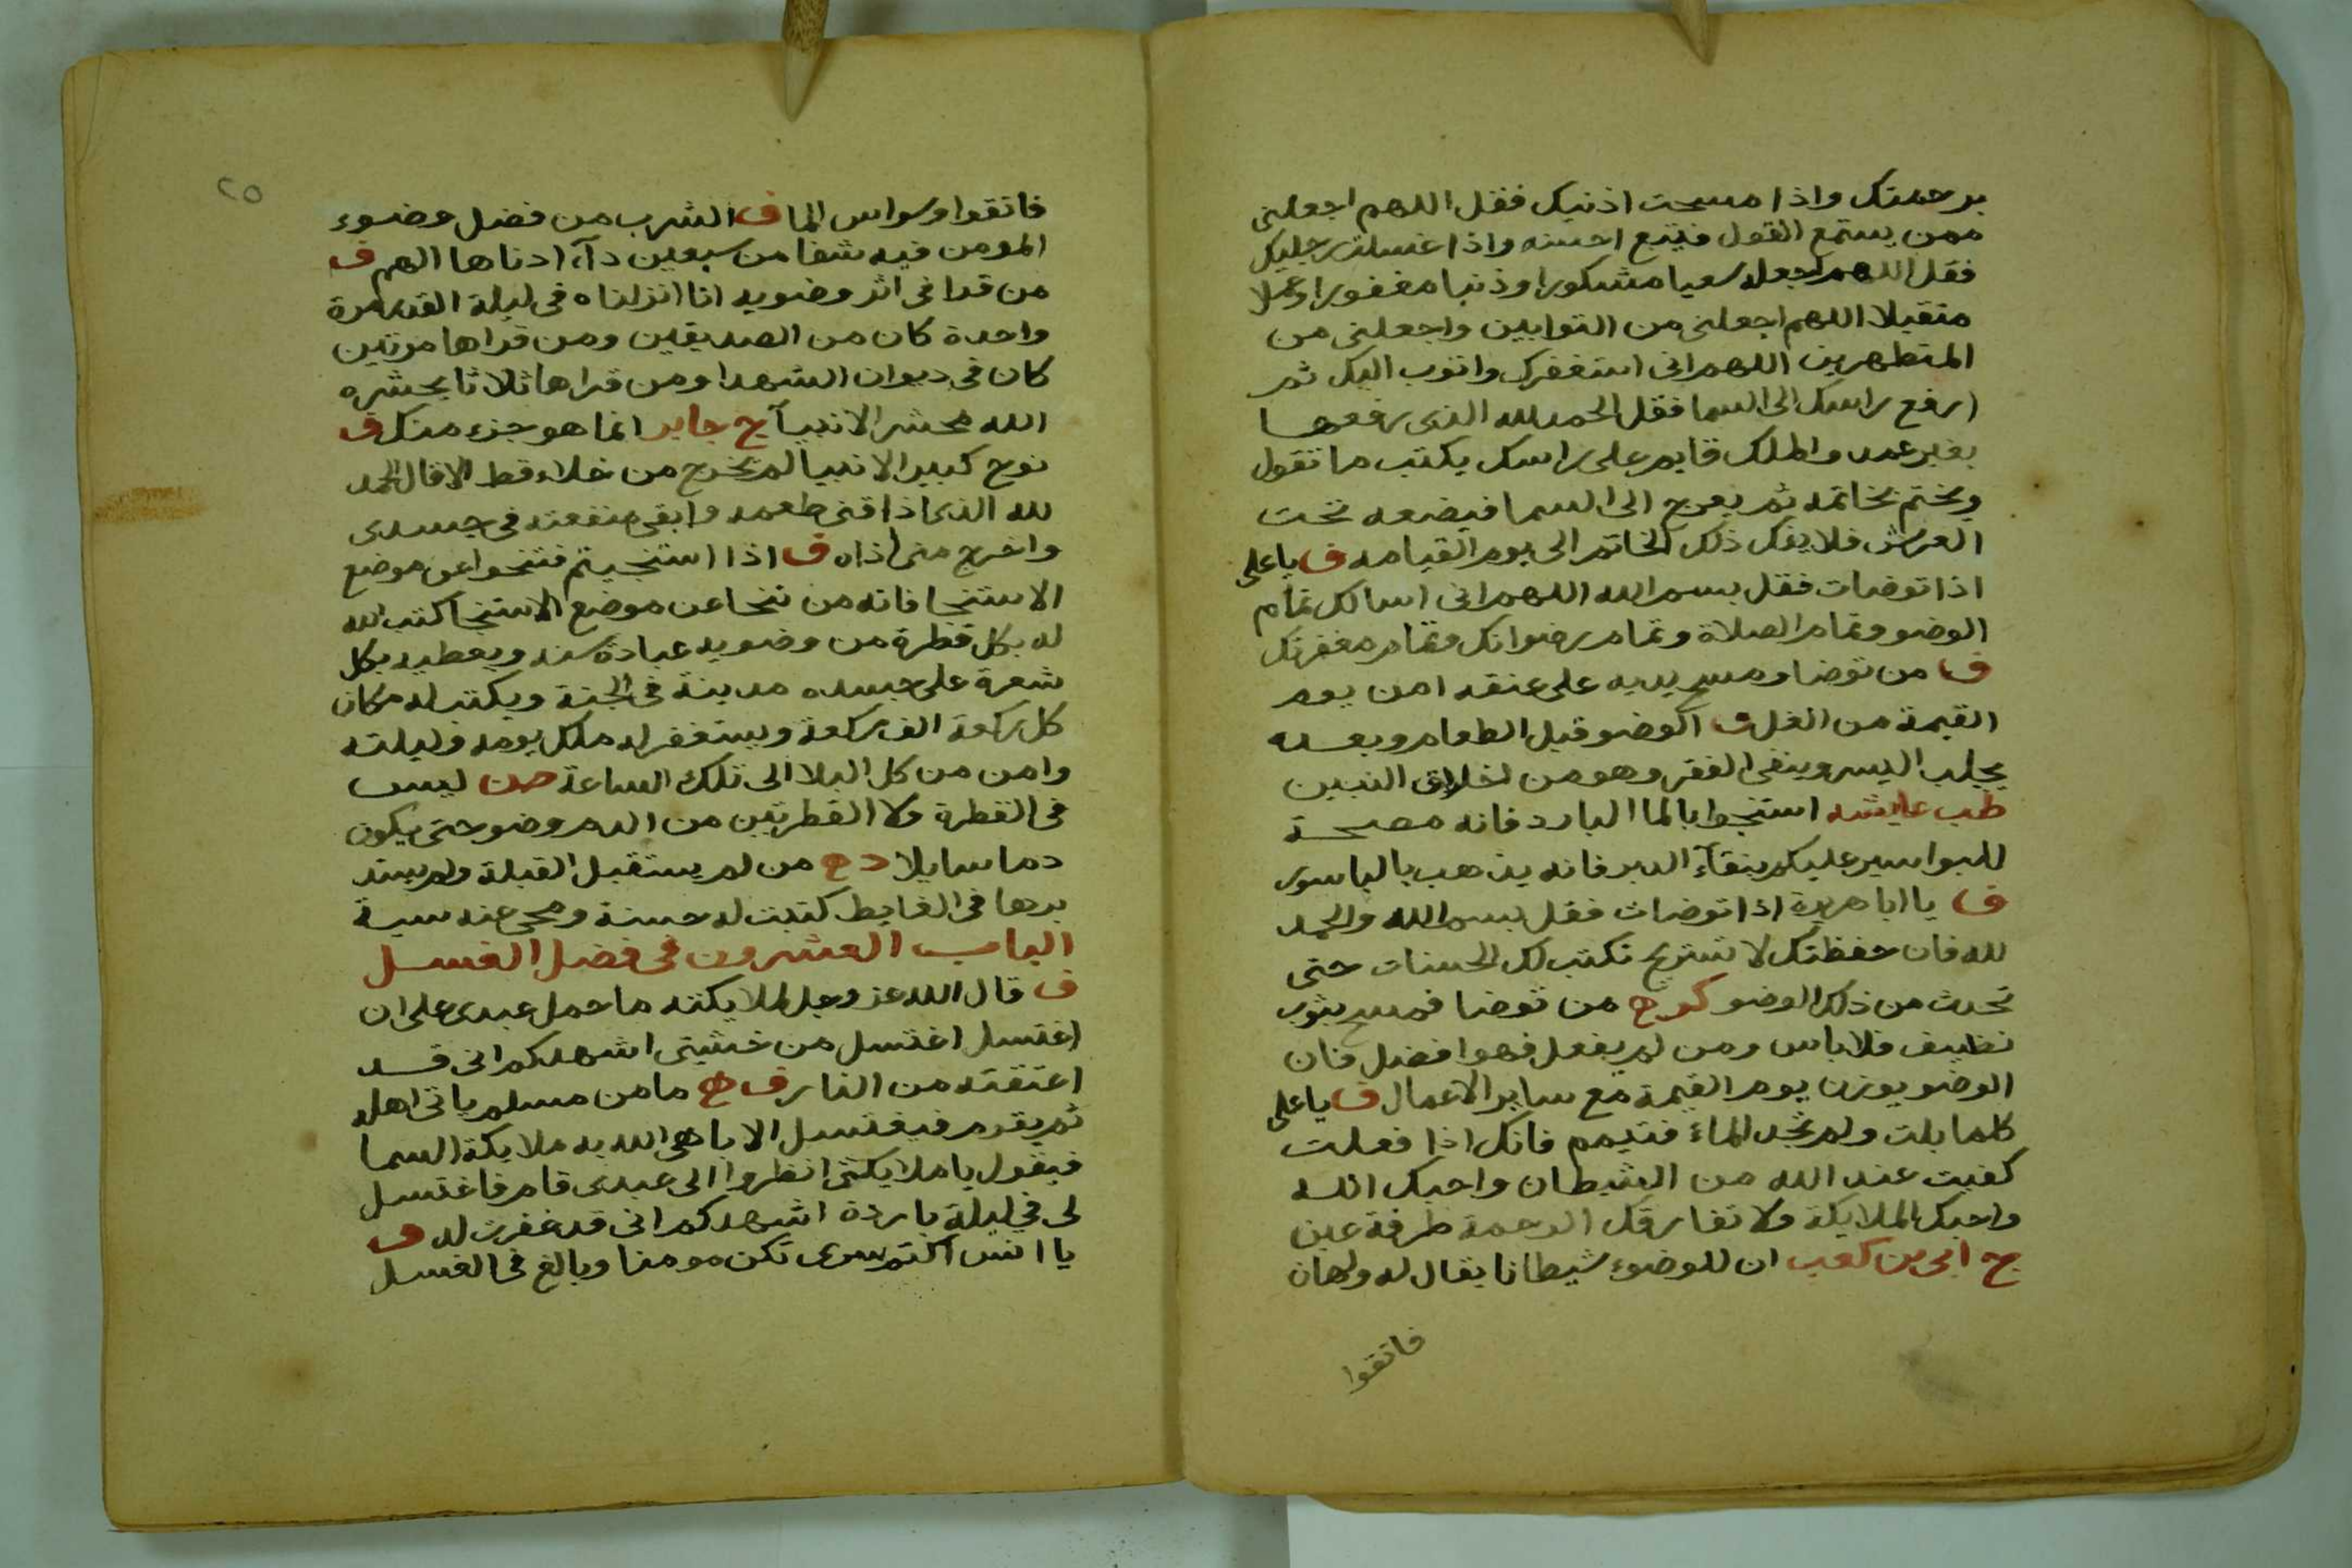 برحمتك واذا مسحت اذنيك فقل اللهم اجعلنى
ممن يستمع القول فيتبع احسنه واذا غسلت رجليك
فقل اللهم اجعله سعيا مشكورا وذنبا مغفورا وعملا
متقبلا اللهم اجعلنى من التوابين واجعلنى من
المتطهرين اللهم انى استغفرك واتوب اليك ثم
ارفع راسك الى السما فقل الحمد لله الذى رفعها
بغير عمد والملك قايم على راسك يكتب ما تقول
ويختم بخاتمه ثم يعرج الى السما فيضعه تحت
العرش فلا يفك ذلك الخاتم الى يوم القيامه ف يا على
اذا توضات فقل بسم الله اللهم انى اسالك تمام
الوضو وتمام الصلاة وتمام رضوانك وتمام مغفرتك
ف من توضا ومسح يديه على عنقه امن يوم
القيمة من الغل ف الوضو قبل الطعام وبعده
يجلب اليسر وينفى الفقر وهو من اخلاق النبين
طب عايشه استنجوا بالما البارد فانه مصحة
للبواسير عليكم بنقآء الدبر فانه يذهب بالباسور
ف يا ابا هريرة اذا توضات فقل بسم الله والحمد
لله فان حفظتك لا تستريح تكتب لك الحسنات حتى
تحدث من ذلك الوضو كر ح من توضا فمسح بثوب
نظيف فلا باس ومن لم يفعل فهوا فضل فان
الوضو يوزن يوم القيمة مع ساير الاعمال ف يا على
كلما بلت ولم تجد الماء فتيمم فانك اذا فعلت
كفيت عند الله من الشيطان واحبك الله
واحبك الملايكة ولا تفارقك الرحمة طرفة عين
ج ابى بن كعب ان للوضوء شيطانا يقال له ولهان
فاتقوا
٢٥
فاتقوا وسواس الما ف الشرب من فضل وضوء
المومن فيه شفا من سبعين دآء ادناها الهم ف
من قرا فى اثر وضويه انا انزلناه فى ليلة القدر مرة
واحدة كان من الصديقين ومن قراها مرتين
كان فى ديوان الشهدا ومن قراها ثلاثا يحشره
الله محشر الانبيآ ج جابر انما هو جزء منك ف
نوح كبير الانبيا لم يخرج من خلاء قط الا قال الحمد
لله الذى اذاقنى طعمه وابقى منفعته فى جسدى
واخرج منى اذاه ف اذا استنجيتم فتنحوا عن موضع
الاستنجا فانه من تنحا عن موضع الاستنجا كتب الله
له بكل قطرة من وضويه عبادة سنه ويعطيه بكل
شعرة على جسده مدينة فى الجنة ويكتب له مكان
كل ركعة الف ركعة ويستغفر له ملك يومه وليلته
وامن من كل البلا الى تلك الساعة صن ليس
فى القطرة ولا القطرتين من الدم وضو حتى يكون
دما سايلا د ح من لم يستقبل القبلة ولم يستد
برها فى الغايط كتبت له حسنة ومحى عنه سية
الباب العشرون فى فضل الغسل
ف قال الله عز وجل لملايكته ما حمل عبدى على ان
اغتسل اغتسل من خشيتى اشهدكم انى قد
اعتقته من النار ف ح ما من مسلم ياتى اهله
ثم يقوم فيغتسل الا باهى الله به ملايكة السما
فيقول يا ملايكتى انظروا الى عبدى قام فاغتسل
لى فى ليلة باردة اشهدكم انى قد غفرت له ف
يا انس اكتم سرى تكن مومنا وبالغ فى الغسل